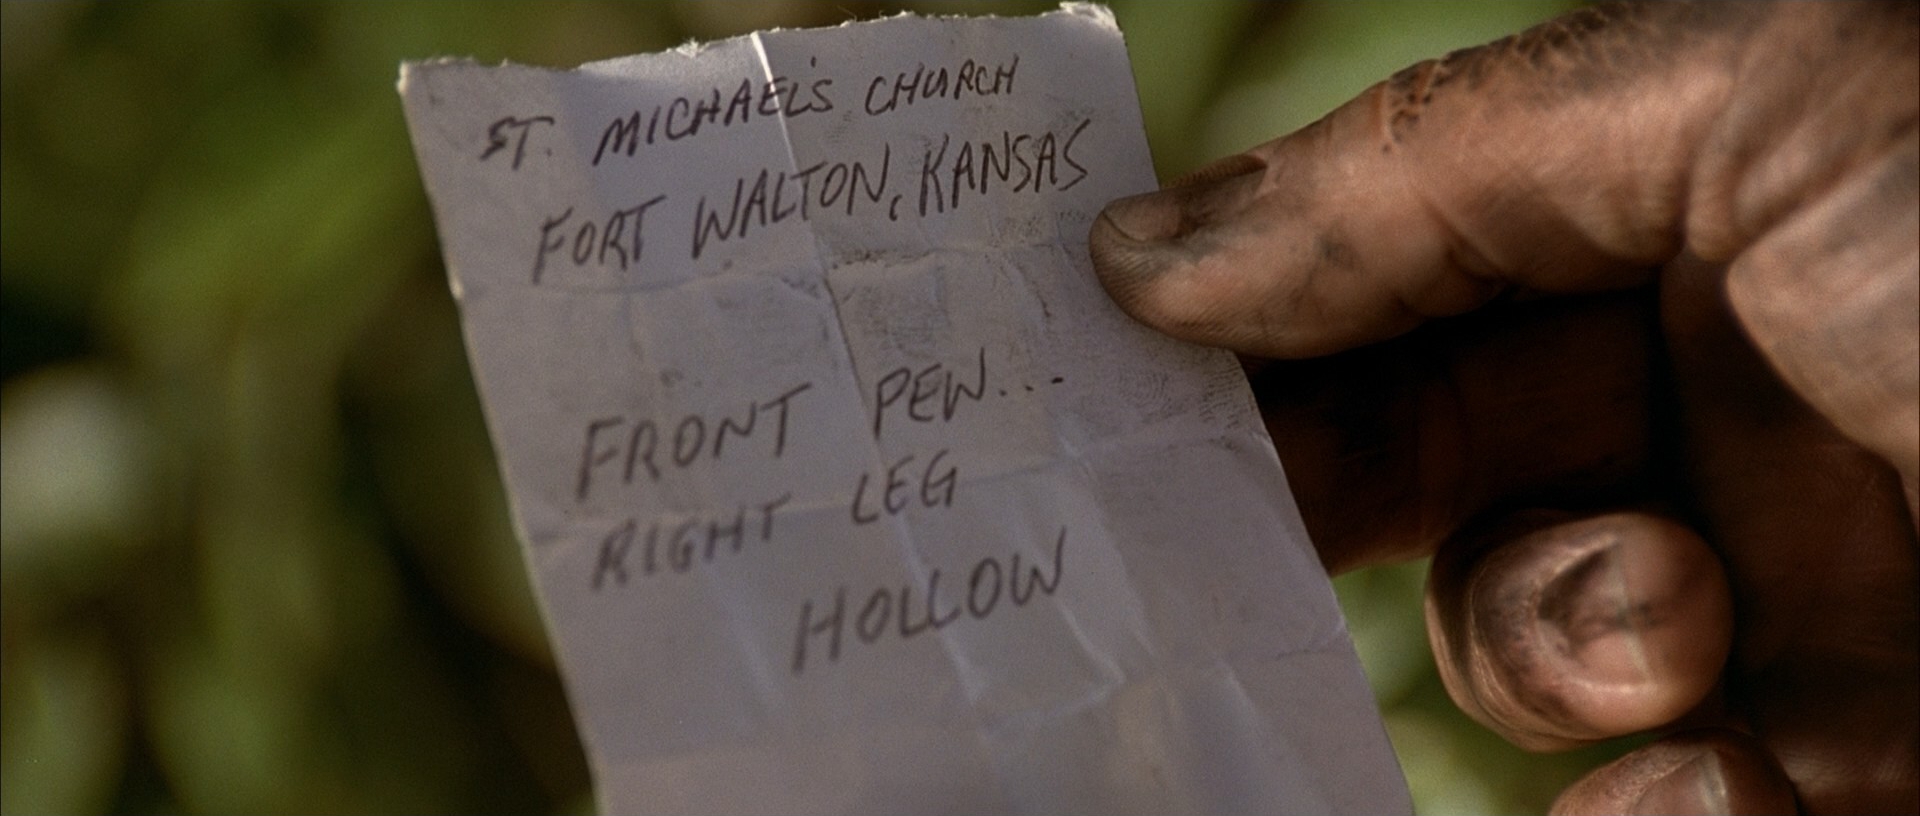 ST. MICHAEL'S CHURCH
FORT WALTON, KANSAS
FRONT PEW...
RIGHT LEG
HOLLOW